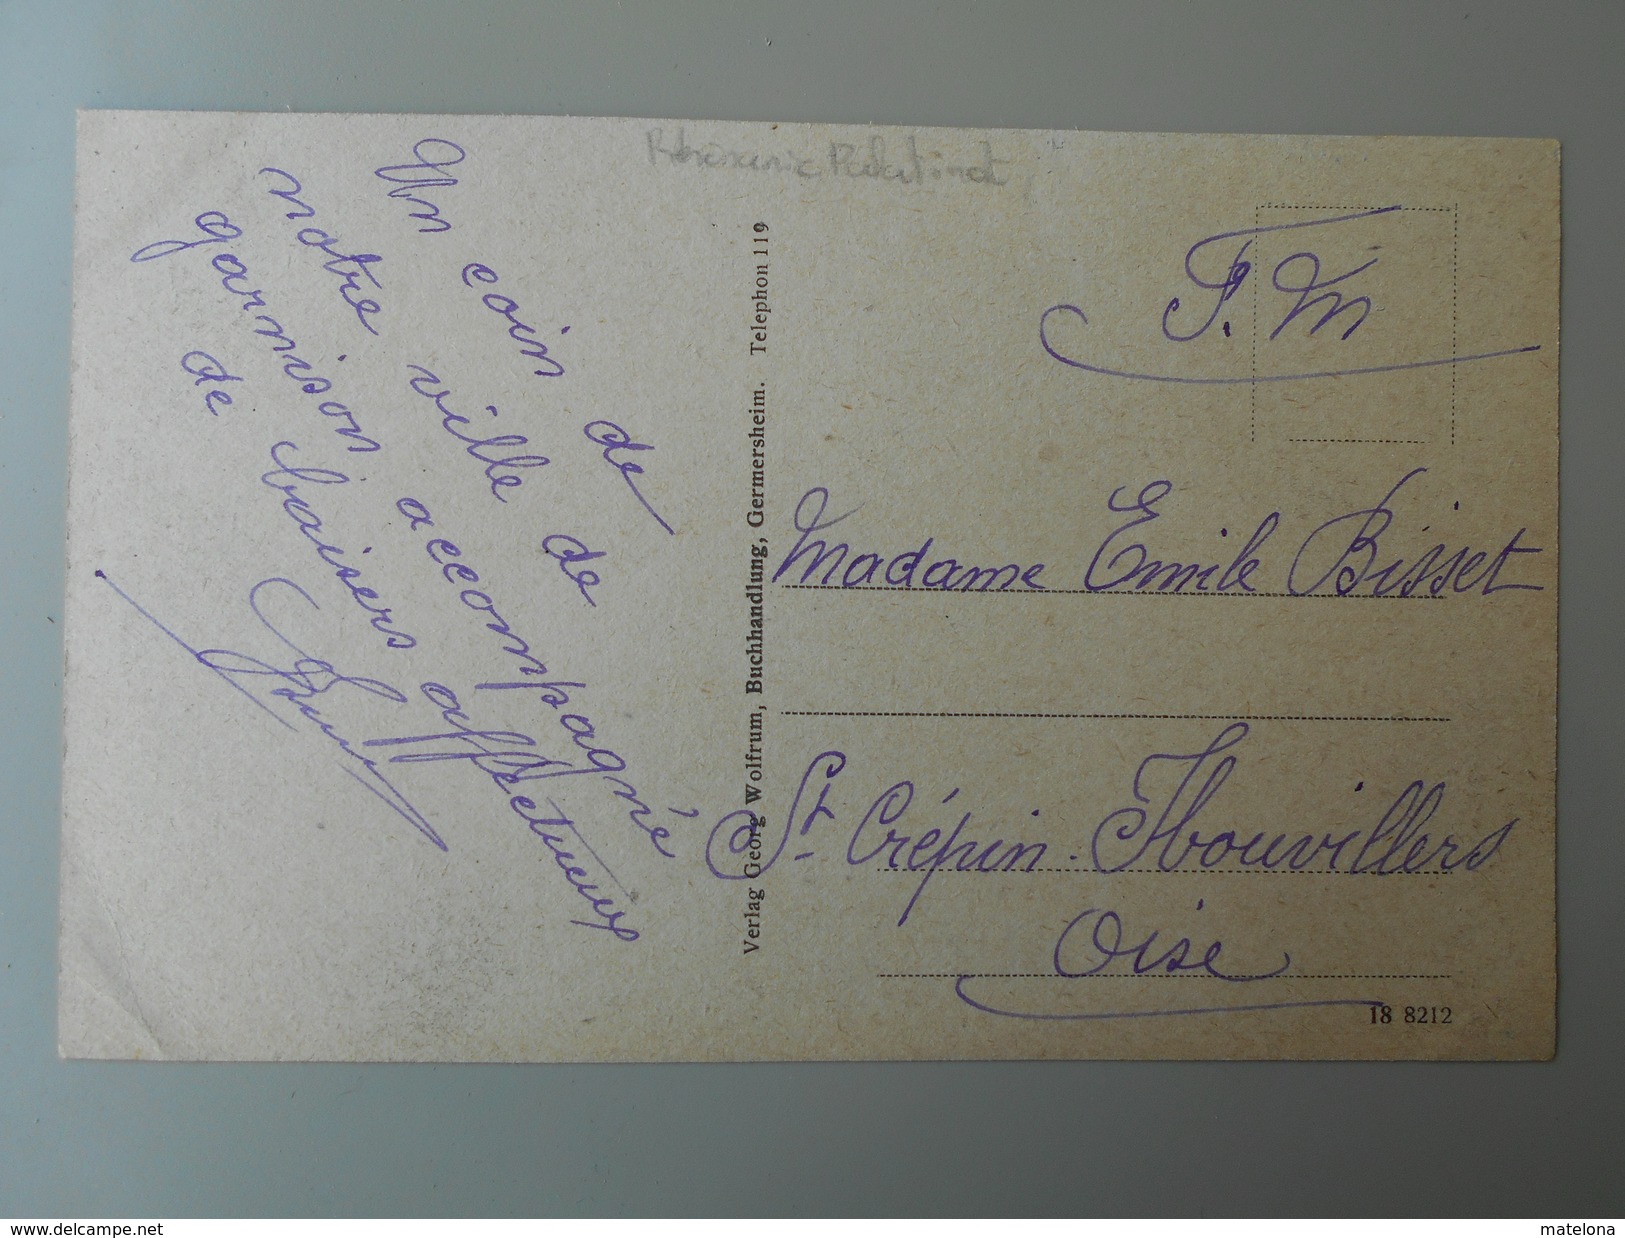 Rhénanie Palatinat
Un coin de
notre ville de
garnison accompagné
de baisers affectueux
Verlag Georg Wolfrum, Buchhandlung, Germersheim. Telephon 119
F. M
Madame Emile Bisset
St. Crépin - Ibouvillers
Oise
18 8212
www.delcampe.net
matelona